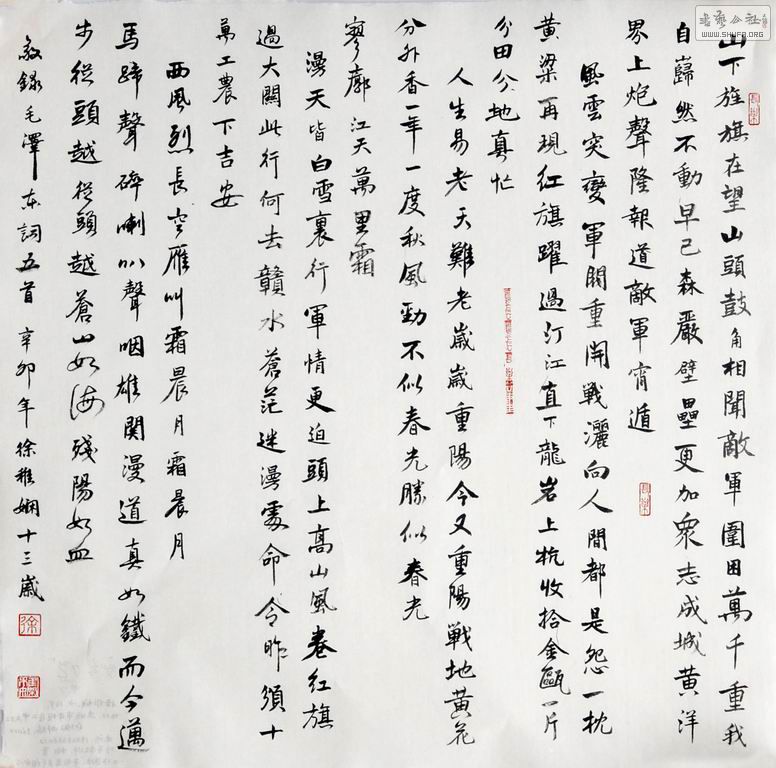 書藝公社
WWW.SHUFA.ORG
山下旌旗在望山頭鼓角相聞敵軍圍困萬千重我
自巋然不動早已森嚴壁壘更加眾志成城黃洋
界上炮聲隆報道敵軍宵遁
風雲突變軍閥重開戰灑向人間都是怨一枕
黃粱再現紅旗躍過汀江直下龍岩上杭收拾金甌一片
分田分地真忙
人生易老天難老歲歲重陽今又重陽戰地黃花
分外香一年一度秋風勁不似春光勝似春光
寥廓江天萬里霜
漫天皆白雪裏行軍情更迫頭上高山風卷紅旗
過大關此行何去贛水蒼茫迷漫處命令昨頒十
萬工農下吉安
西風烈長空雁叫霜晨月霜晨月
馬蹄聲碎喇叭聲咽雄関漫道真如鐵而今邁
步從頭越從頭越蒼山如海殘陽如血
敬錄毛澤東詞五首辛卯年徐雅嫻十三歲
徐